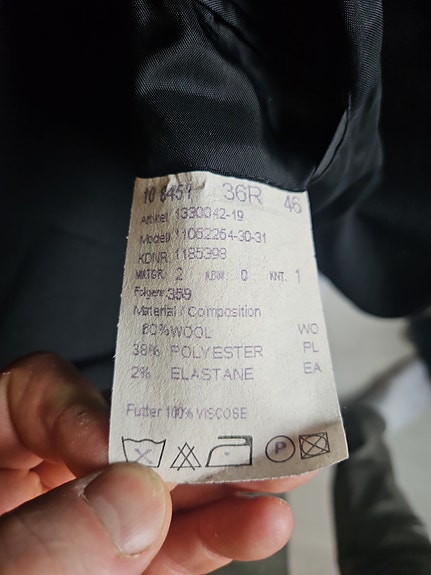 10 8451 36R 46
Artikel 1330042-19
Modell 11052264-30-31
KDNR. 1185398
MATGR. 2 ABW. 0 KNT. 1
Folgenr. 359
Material / Composition
60% WOOL WO
38% POLYESTER PL
2% ELASTANE EA
Futter 100% VISCOSE
P